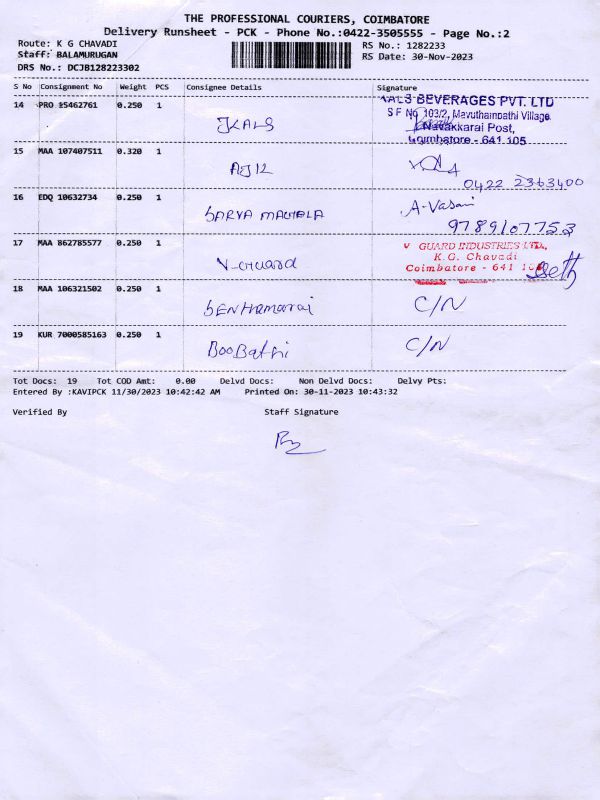 THE PROFESSIONAL COURIERS, COIMBATORE
Delivery Runsheet - PCK - Phone No.:0422-3505555 - Page No.:2
Route: K G CHAVADI RS No.: 1282233
Staff: BALAMURUGAN RS Date: 30-Nov-2023
DRS No.: DCJB128223302
S No Consignment No Weight PCS Consignee Details Signature
14 PRO 15462761 0.250 1 JKALS KALS BEVERAGES PVT. LTD
S F No 103/2, Mavuthampathi Village
Navakkarai Post,
Coimbatore - 641 105
15 MAA 107407511 0.320 1
0422 2363400
16 EDQ 10632734 0.250 1 SARVA MANGALA A-Vasani
9789107753
17 MAA 862785577 0.250 1 V-Guard V GUARD INDUSTRIES LTD.,
K.G. Chavadi
Coimbatore - 641 105
18 MAA 106321502 0.250 1 SENTHamarai C/N
19 KUR 7000585163 0.250 1 BooBathi C/N
Tot Docs: 19 Tot COD Amt: 0.00 Delvd Docs: Non Delvd Docs: Delvy Pts:
Entered By :KAVIPCK 11/30/2023 10:42:42 AM Printed On: 30-11-2023 10:43:32
Verified By Staff Signature